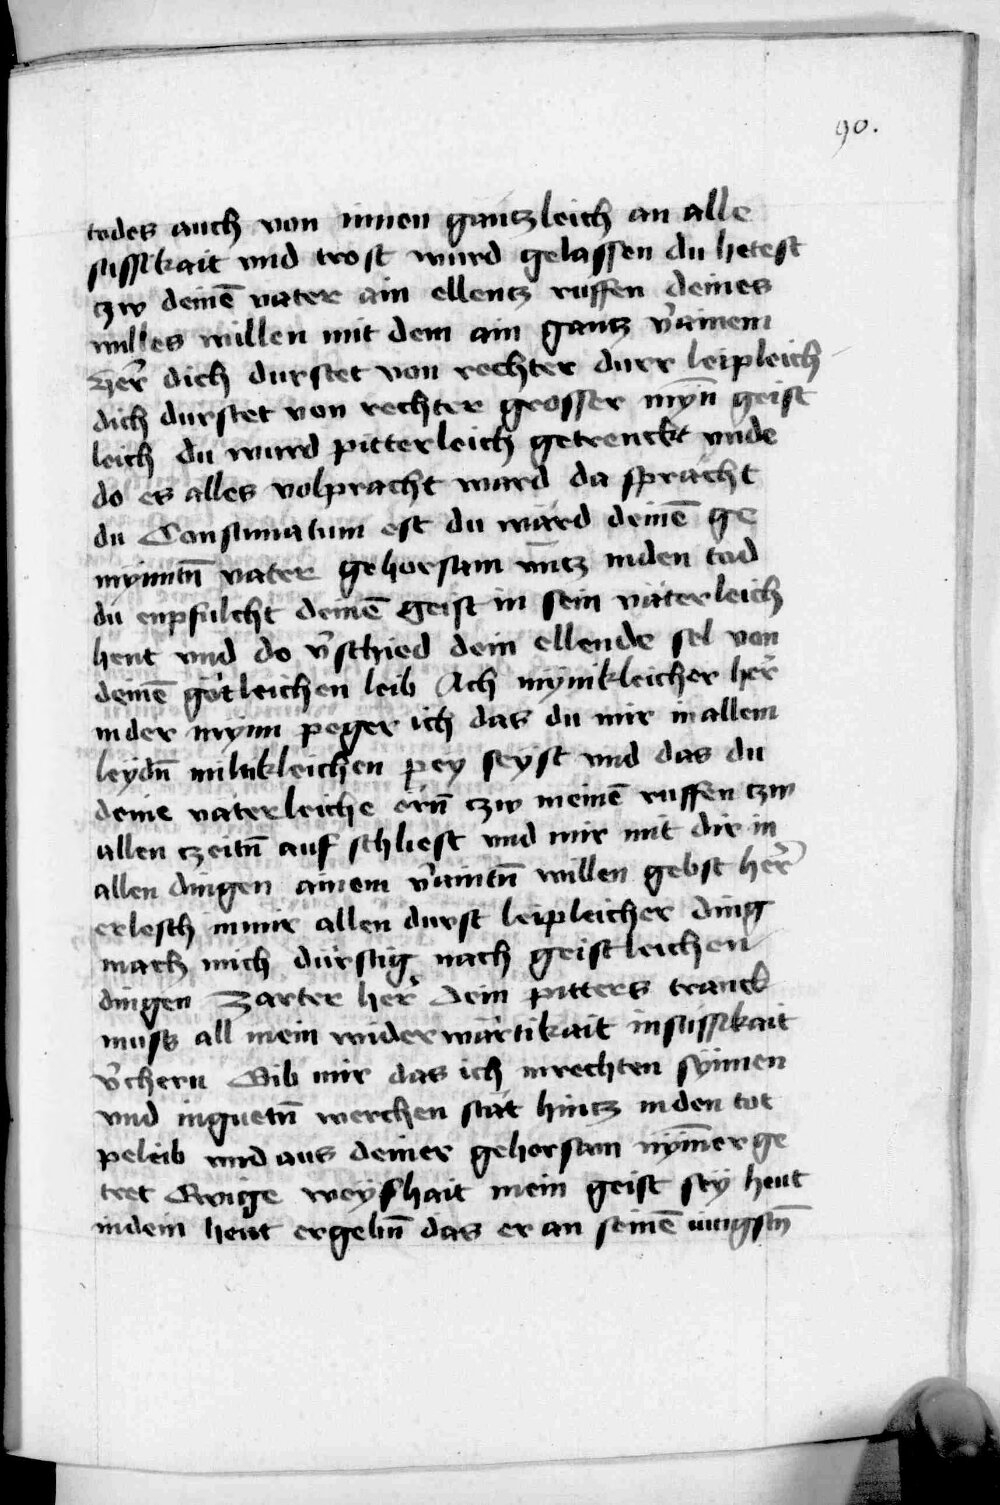 90.
todes auch von innen gantzleich an alle
sussikait vnd trost wurd gelassen du hetest
tzw deinē vater ain ellentz ruffen deines
willes willen mit dem ain gantz v̄ainem
Her̄ dich durstet von rechter durr leipleich
dich durstet von rechter grosser mȳn geist
leich du wurd pitterleich getrenckt vnde
do es alles volpracht ward da spracht
du Consumatum est du ward deinē ge
mynntn̄ vater gehorsam vn̄tz inden tod
du enpfulcht deinē geist in sein väterleich
hent vnd do v̄schied dein ellende sel von
deinē götleichen leib Ach mynikleicher her̄
inder mynn peger ich das du mir in allem
leydn̄ miltikleichen pey seyst vnd das du
deine väterleiche orn̄ tzw meinē ruffen tzw
allen tzeitn̄ auf schliest vnd mir mit dir in
allen dingen ainem v̄aintn̄ willen gebst her̄
erlesch inmir allen durst leipleicher ding
mach mich dürstig nach geistleichen
dingen Zarter her̄ Dein pitters tranck
muss all mein widerwärtikait insussikait
v̄chern Gib mir das ich inrechten synnen
vnd inguetn̄ werchen stät hintz inden tot
peleib vnd aus deiner gehorsam nym̄er ge
tret Ewige weyshait mein geist sey hent
indein hent ergebn̄ das er an seinē iungstn̄